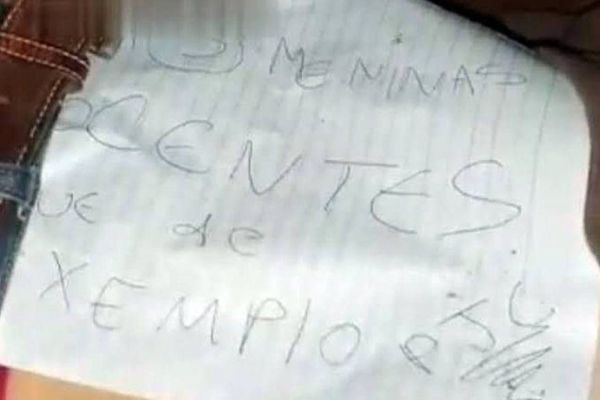 MENINAS
OCENTES.
UE de
XEMPlO